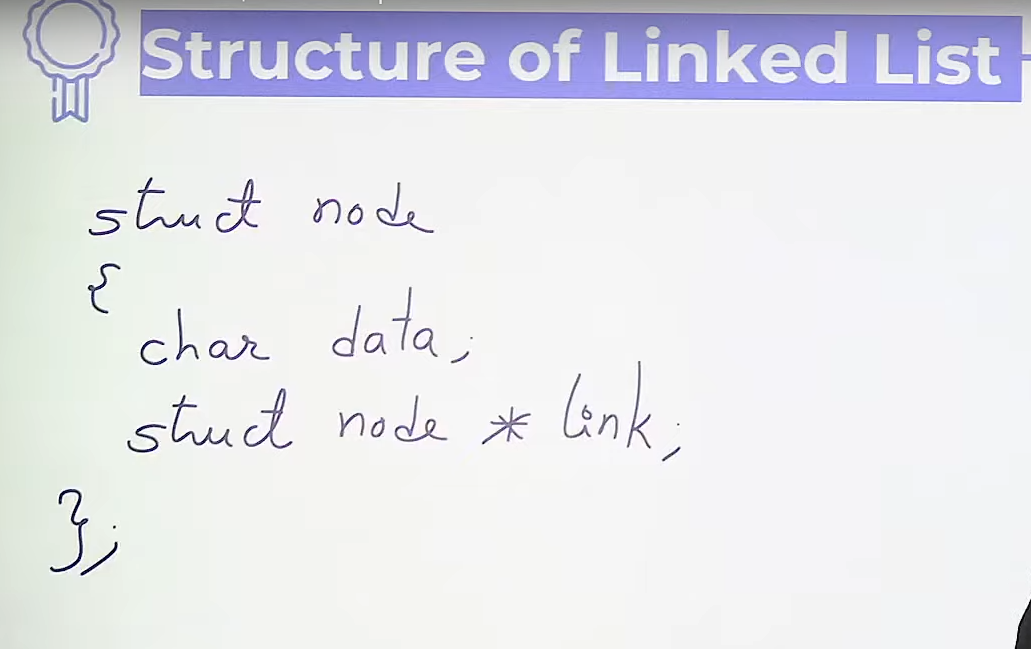 Structure of Linked List
struct node
{
char data;
struct node * link;
};